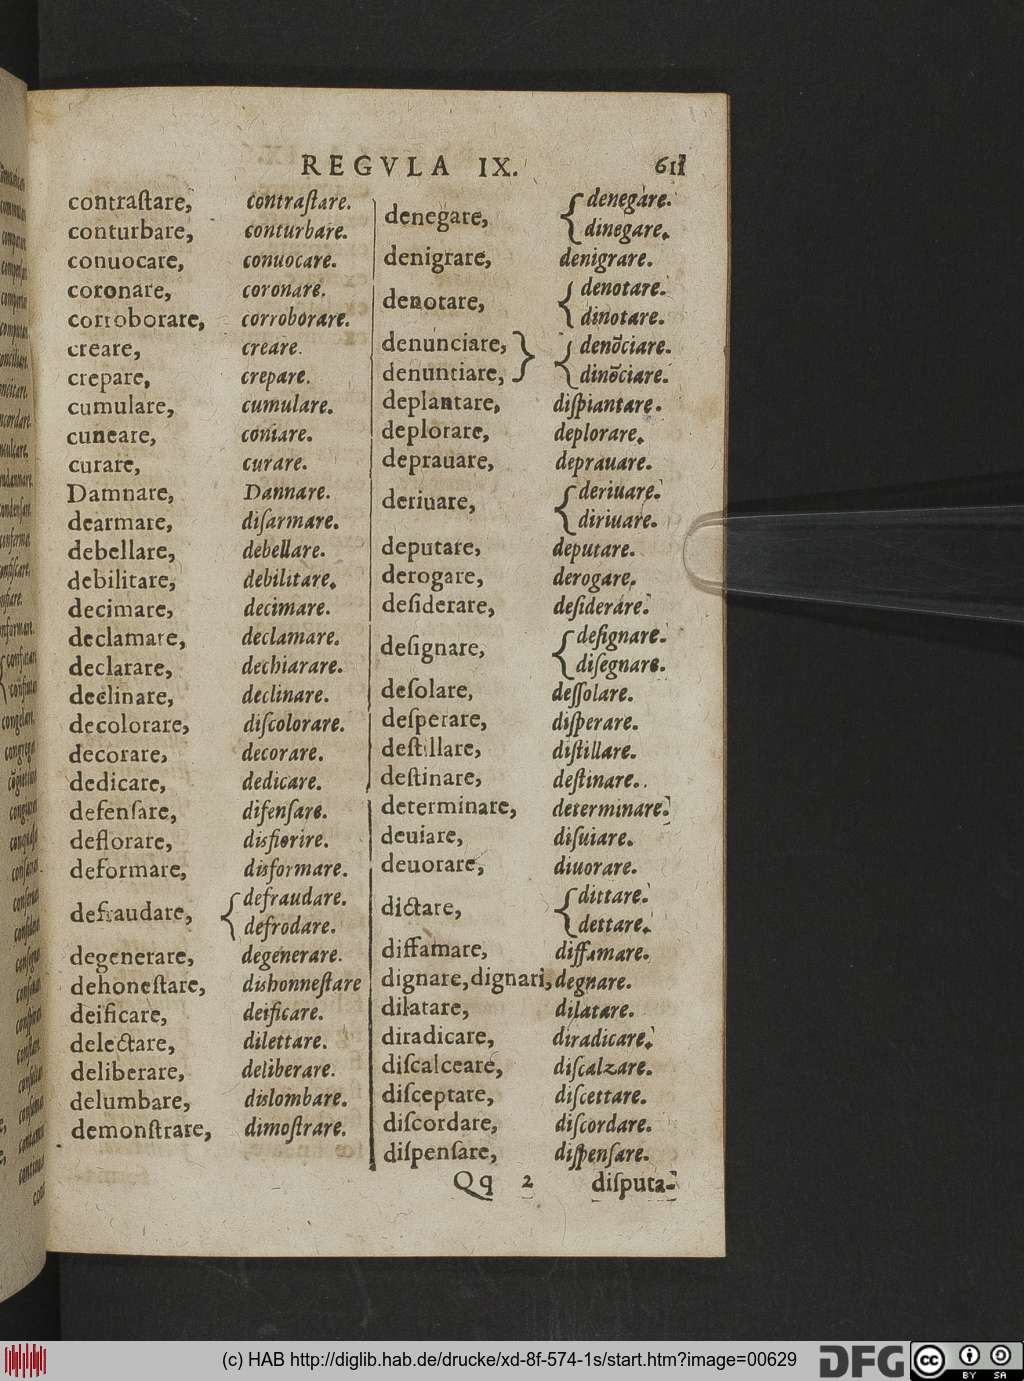 REGVLA IX. 611
contraſtare, contraſtare.
conturbare, conturbare.
conuocare, conuocare.
coronare, coronare.
corroborare, corroborare.
creare, creare.
crepare, crepare.
cumulare, cumulare.
cuneare, coniare.
curare, curare.
Damnare, Dannare.
dearmare, diſarmare.
debellare, debellare.
debilitare, debilitare.
decimare, decimare.
declamare, declamare.
declarare, dechiarare.
declinare, declinare.
decolorare, diſcolorare.
decorare, decorare.
dedicare, dedicare.
defenſare, difenſare.
deflorare, disfiorire.
deformare, disformare.
defraudare, { defraudare.
defrodare.
degenerare, degenerare.
dehoneſtare, dishonneſtare
deificare, deificare.
delectare, dilettare.
deliberare, deliberare.
delumbare, dislombare.
demonſtrare, dimoſtrare.
denegare, { denegare.
dinegare.
denigrare, denigrare.
denotare, { denotare.
dinotare.
denunciare, } { denõciare.
denuntiare, dinõciare.
deplantare, diſpiantare.
deplorare, deplorare.
deprauare, deprauare.
deriuare, { deriuare.
diriuare.
deputare, deputare.
derogare, derogare.
deſiderare, deſiderare.
deſignare, { deſignare.
diſegnare.
deſolare, deſſolare.
deſperare, diſperare.
deſtillare, diſtillare.
deſtinare, deſtinare.
determinare, determinare.
deuiare, diſuiare.
deuorare, diuorare.
dictare, { dittare.
dettare.
diffamare, diffamare.
dignare, dignari, degnare.
dilatare, dilatare.
diradicare, diradicare.
diſcalceare, diſcalzare.
diſceptare, diſcettare.
diſcordare, diſcordare.
diſpenſare, diſpenſare.
Qq 2 diſputa-
(c) HAB http://diglib.hab.de/drucke/xd-8f-574-1s/start.htm?image=00629
DFG
cc BY SA